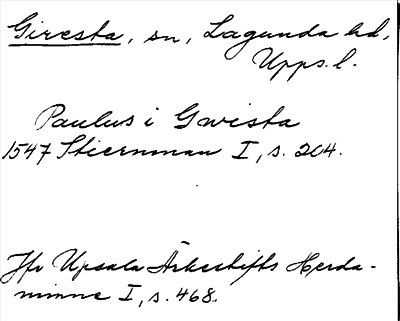 Giresta, sn, Lagunda hd,
Upps. l.
Paulus i Gwista
1547 Stiernman I, s. 204.
Jfr Upsala Ärkestifts Herda-
minne I, s. 468.